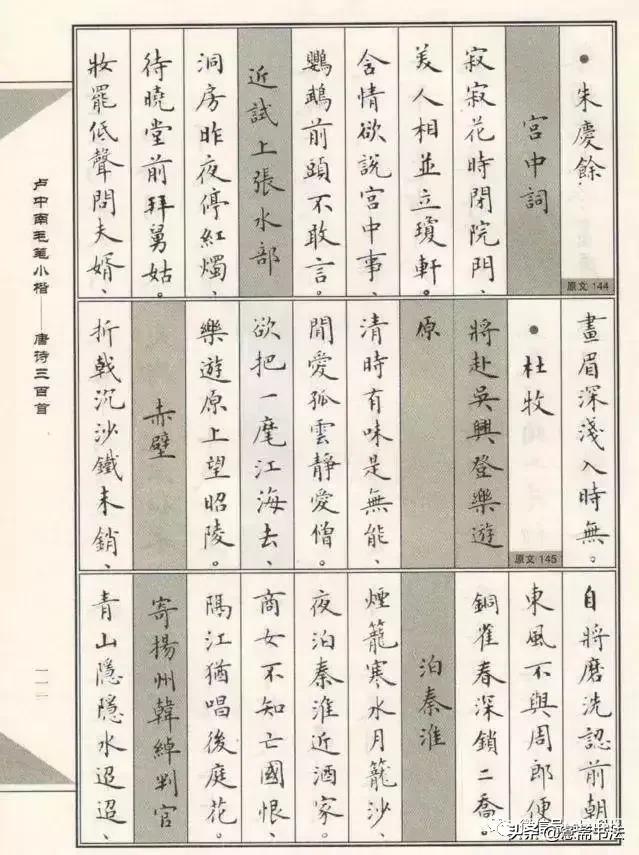 ● 朱慶餘
原文 144
宮中詞
寂寂花時閉院門、
美人相並立瓊軒。
含情欲說宮中事、
鸚鵡前頭不敢言。
近試上張水部
洞房昨夜停紅燭、
待曉堂前拜舅姑。
妝罷低聲問夫婿、
畫眉深淺入時無。
● 杜牧
原文 145
將赴吳興登樂遊
原
清時有味是無能、
閒愛孤雲靜愛僧。
欲把一麾江海去、
樂遊原上望昭陵。
赤壁
折戟沉沙鐵未銷、
自將磨洗認前朝
東風不與周郎便
銅雀春深鎖二喬。
泊秦淮
煙籠寒水月籠沙、
夜泊秦淮近酒家。
商女不知亡國恨、
隔江猶唱後庭花。
寄揚州韓綽判官
青山隱隱水迢迢、
卢中南毛笔小楷——唐诗三百首
头条 @ 斋书法